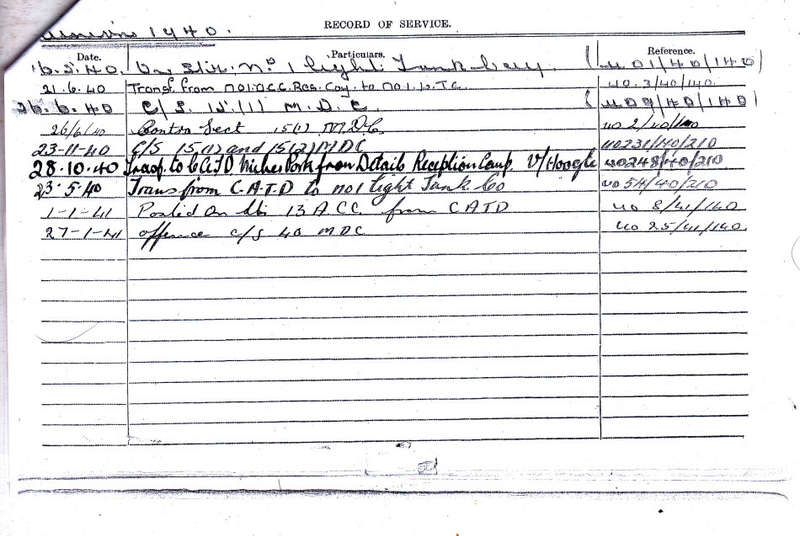 RECORD OF SERVICE.
1940.
Date. Particulars. Reference.
16.5.40. On Str. No 1 Light Tank Coy. (U.O 1/40/140)
21.6.40 Transf. from no1. O.C.C. Res. Coy. to no 1. L.T.C. UO. 3/40/140.
26.6.40 C/S. 15.(1) M.D.C. (UO 9/40/140)
26/6/40 Contra Sect 15(1) MDC. UO 2/40/140
23-11-40 C/S 15(1) and 15(2) MDC UO231/40/210
28.10.40 Transp. to C.A.T.D from Details Reception Camp V/Hoogte UO248/40/210
23.5.40 Trans from C.A.T.D to no1 Light Tank Co UO 54/40/210
1-1-41 Posted On Str 13 A.C.C. from CATD UO 8/41/140
27-1-41 offence C/S 40 MDC UO 25/41/140